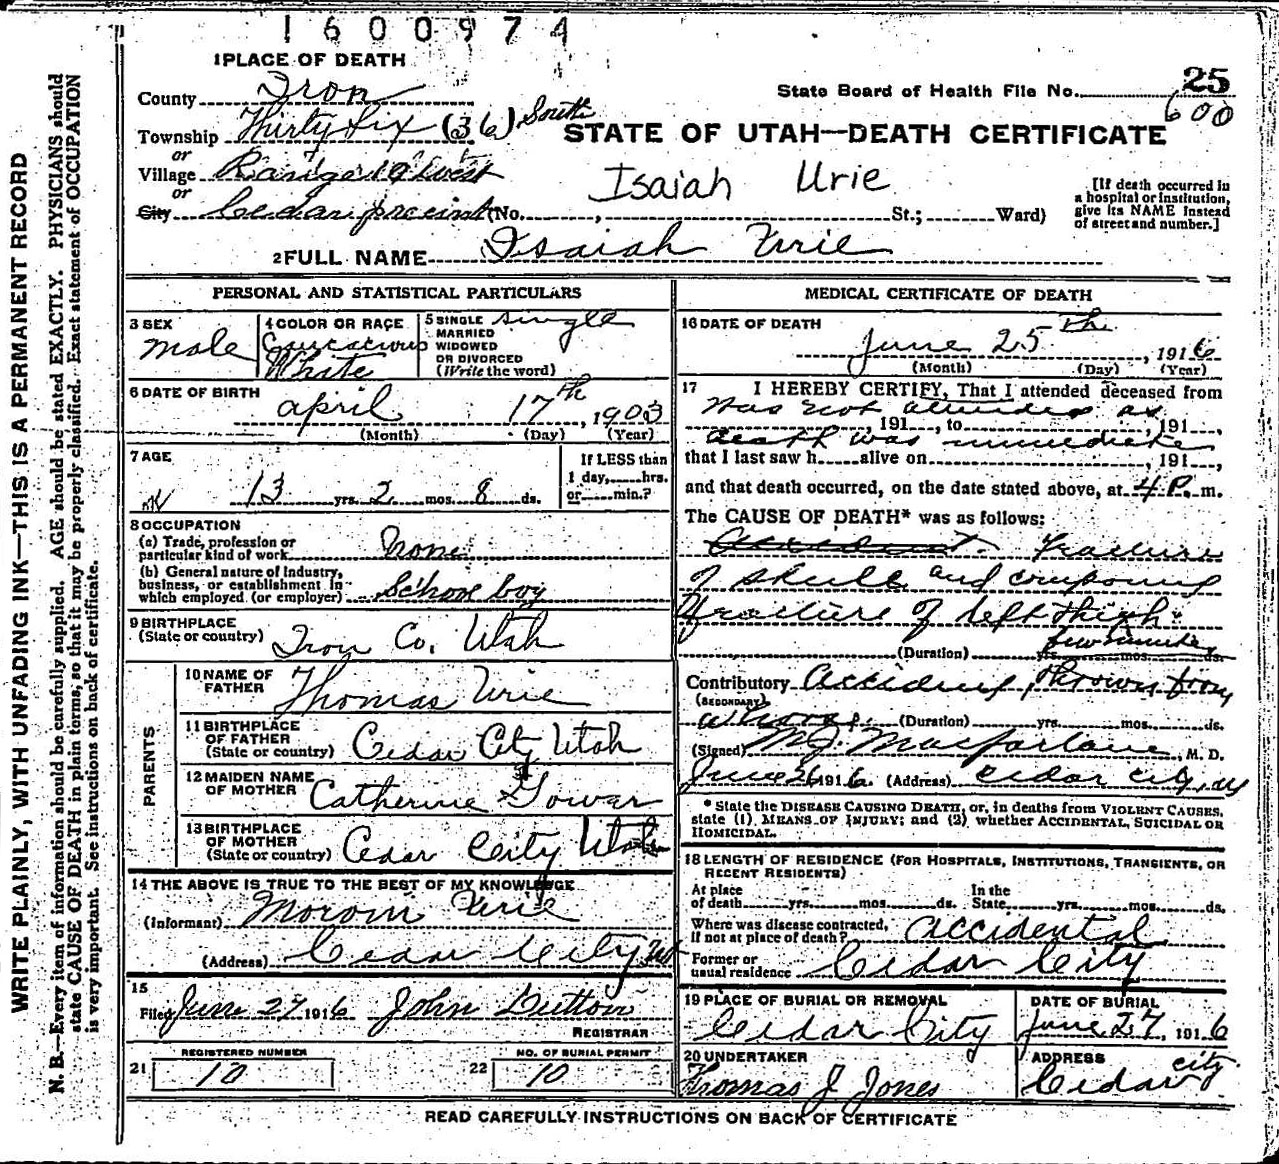 1600974
1 PLACE OF DEATH
County Iron
State Board of Health File No. 25
600
Township Thirty Six (36) South
STATE OF UTAH—DEATH CERTIFICATE
or
Village Range 12 West
Isaiah Urie
or
City Cedar precinct (No. , St.; Ward)
[If death occurred in
a hospital or institution,
give its NAME instead
of street and number.]
2 FULL NAME Isaiah Urie
PERSONAL AND STATISTICAL PARTICULARS
3 SEX
male
4 COLOR OR RACE
Caucasious
White
5 SINGLE
MARRIED
WIDOWED
OR DIVORCED
(Write the word)
single
6 DATE OF BIRTH
april 17th, 1903
(Month) (Day) (Year)
7 AGE
13 yrs. 2 mos. 8 ds.
If LESS than
1 day, hrs.
or min.?
8 OCCUPATION
(a) Trade, profession or
particular kind of work None
(b) General nature of industry,
business, or establishment in
which employed (or employer) School boy
9 BIRTHPLACE
(State or country) Iron Co. Utah
PARENTS
10 NAME OF
FATHER Thomas Urie
11 BIRTHPLACE
OF FATHER
(State or country) Cedar City Utah
12 MAIDEN NAME
OF MOTHER Catherine Gowar
13 BIRTHPLACE
OF MOTHER
(State or country) Cedar City Utah
14 THE ABOVE IS TRUE TO THE BEST OF MY KNOWLEDGE
(Informant) Moroni Urie
(Address) Cedar City, Ut
15
Filed June 27 1916 John Dutton
REGISTRAR
21 REGISTERED NUMBER
10
22 NO. OF BURIAL PERMIT
10
MEDICAL CERTIFICATE OF DEATH
16 DATE OF DEATH
June 25th, 1916
(Month) (Day) (Year)
17 I HEREBY CERTIFY, That I attended deceased from
Was not attended as
, 191 , to , 191 ,
death was immediate
that I last saw h alive on , 191 ,
and that death occurred, on the date stated above, at 4 P. m.
The CAUSE OF DEATH* was as follows:
Accident. Fracture
of skull and compound
fracture of left thigh.
(Duration) yrs. mos. ds. few minutes
Contributory Accident, thrown from
(SECONDARY)
(Duration) yrs. mos. ds.
(Signed) M.J. Macfarlane, M. D.
June 26 1916. (Address) Cedar City, Ut
* State the DISEASE CAUSING DEATH, or, in deaths from VIOLENT CAUSES,
state (1) MEANS OF INJURY; and (2) whether ACCIDENTAL, SUICIDAL OR
HOMICIDAL.
18 LENGTH OF RESIDENCE (FOR HOSPITALS, INSTITUTIONS, TRANSIENTS, OR
RECENT RESIDENTS)
At place
of death yrs. mos. ds.
In the
State yrs. mos. ds.
Where was disease contracted,
if not at place of death? accidental
Former or
usual residence Cedar City
19 PLACE OF BURIAL OR REMOVAL
Cedar City
DATE OF BURIAL
June 27, 1916
20 UNDERTAKER
Thomas J Jones
ADDRESS
Cedar City
READ CAREFULLY INSTRUCTIONS ON BACK OF CERTIFICATE
WRITE PLAINLY, WITH UNFADING INK—THIS IS A PERMANENT RECORD
N. B.—Every item of information should be carefully supplied. AGE should be stated EXACTLY. PHYSICIANS should
state CAUSE OF DEATH in plain terms, so that it may be properly classified. Exact statement of OCCUPATION
is very important. See instructions on back of certificate.